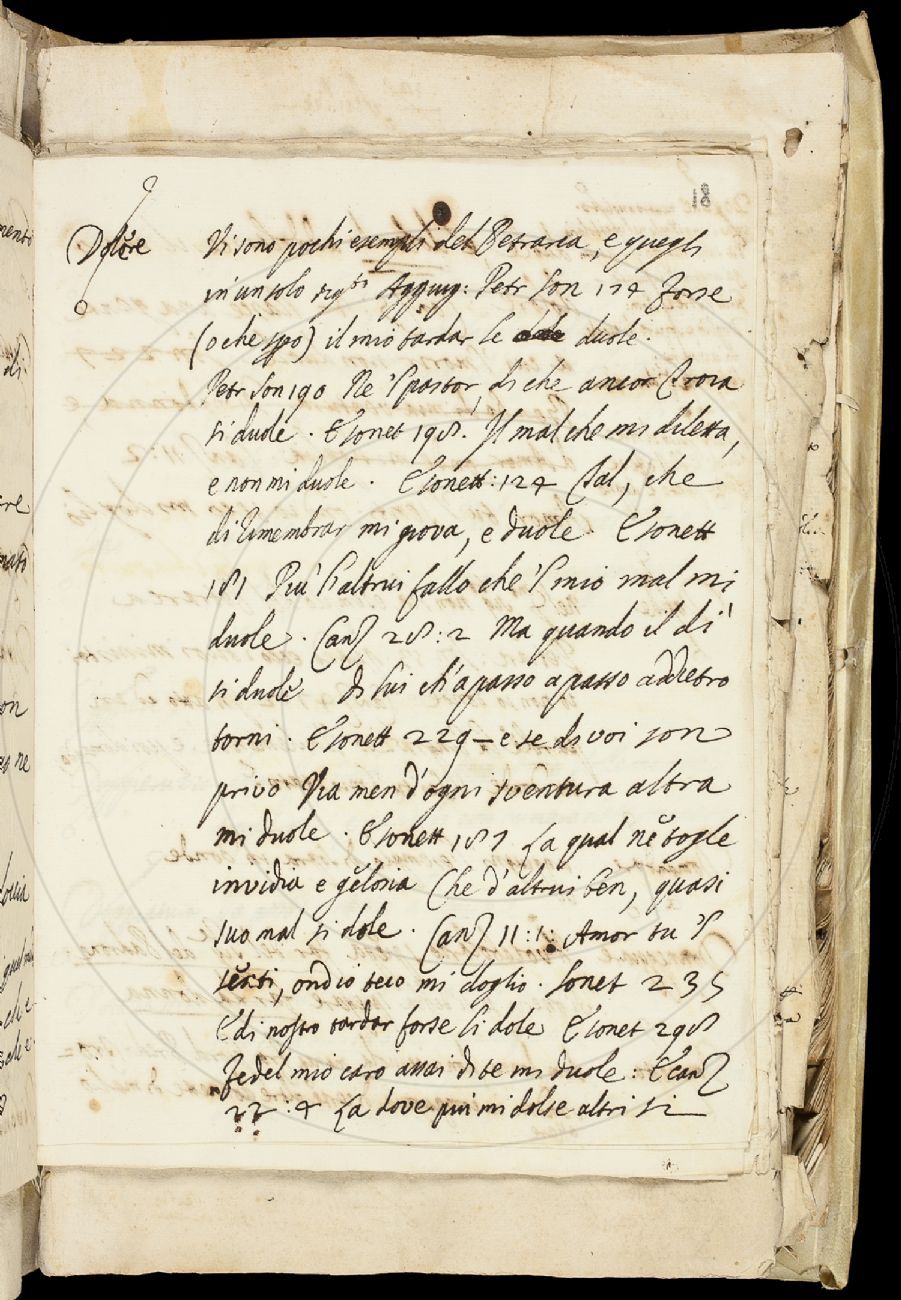 18
Dolére
Vi sono pochi esempli del Petrarca, e quegli
in un solo sig.to Aggiug: Petr Son 174 forse
(o che spo) il mio tardar le duole.
Petr Son 190 Ne 'l pastor, di che ancor Troia
si duole. E sonet 198. Il mal che mi diletta,
e non mi duole. E sonett: 124 Tal, che
di rimembrar mi giova, e duole E Sonett
181 Più l'altrui fallo che 'l mio mal mi
duole. Canz 28:2 Ma quando il dí
si duole di lui ch'a passo a passo addietro
torni. E sonett 229 – e se di voi son
privo Via men d'ogni sventura altra
mi duole. E sonett 187 La qual ne togle
invidia e gelosia Che d'altrui ben, quasi
suo mal si dole. Canz 11:1: Amor tu 'l
senti, ond io teco mi doglio. Sonet 235
E di nostro tardar forse li dole E sonet 298
Fedel mio caro assai di te mi duole: E Canz
22:4 La dove piu mi dolse altri si